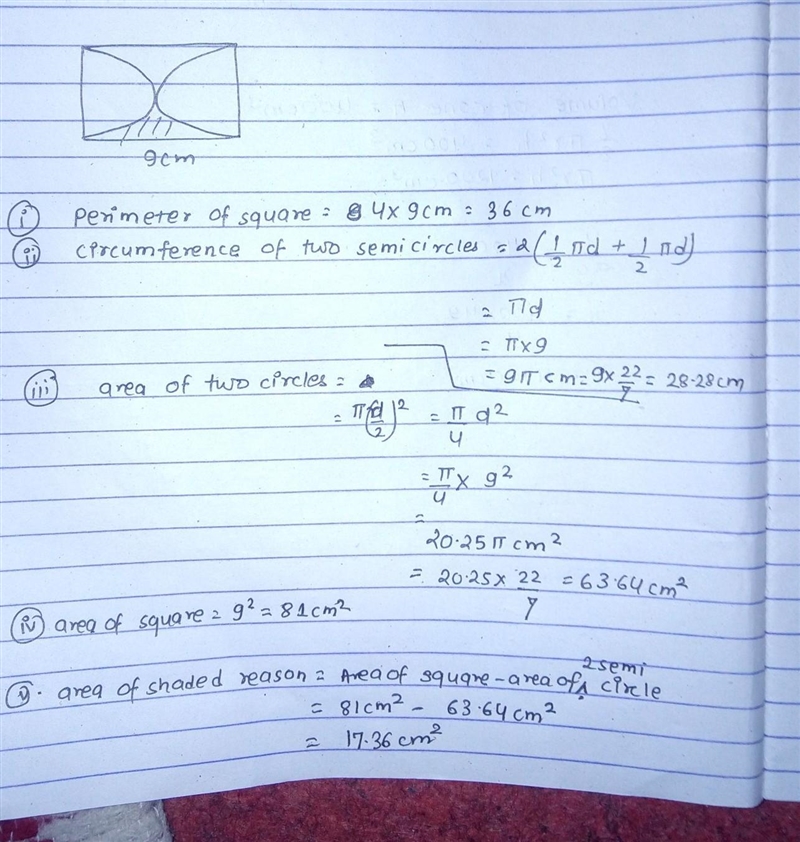 9cm
(i) perimeter of square = 4 x 9cm = 36 cm
(ii) circumference of two semicircles = 2(1/2 πd + 1/2 πd)
= πd
= π x 9
= 9π cm = 9 x 22/7 = 28.28cm
(iii) area of two circles =
= π(d/2)² = π/4 d²
= π/4 x 9²
=
20.25 π cm²
= 20.25 x 22/7 = 63.64 cm²
(iv) area of square = 9² = 81cm²
(v). area of shaded reason = Area of square - area of 2 semi circle
= 81cm² - 63.64cm²
= 17.36 cm²